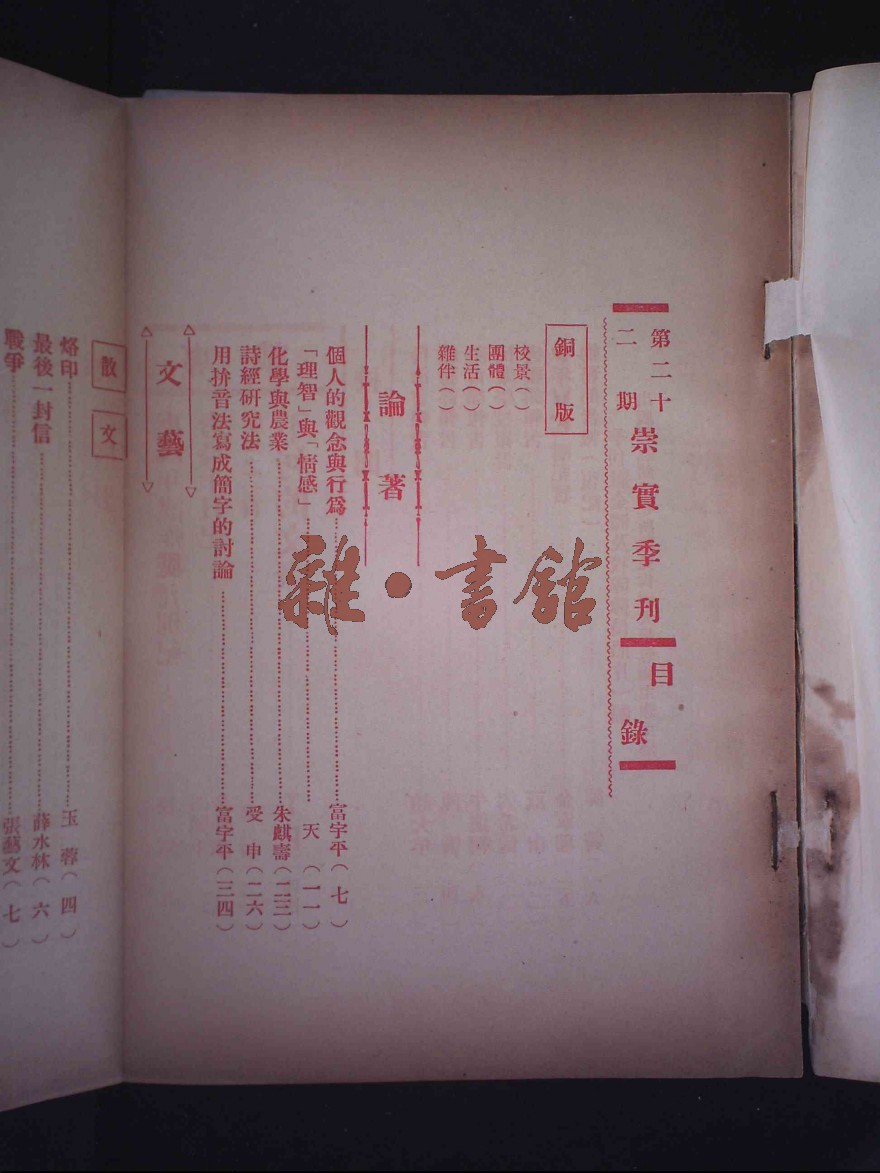 第二十二期
崇實季刊
目錄
銅版
校景（）
團體（）
生活（）
雜件（）
論著
個人的觀念與行爲 富字平（七）
「理智」與「情感」 天（一一）
化學與農業 朱麒壽（二三）
詩經研究法 受申（二六）
用拚音法寫成簡字的討論 富字平（三四）
文藝
散文
烙印 玉蓉（四）
最後一封信 薛水林（六）
戰爭 張藝文（七）
雜·書館